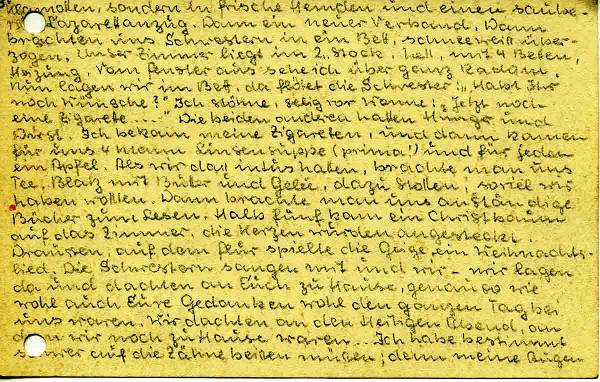 Klamotten, sondern in frische Hemden und einen saube-
Lazarettanzug. Dann ein neuer Verband. Dann
brachten uns Schwestern in ein Bett, schneeweiß über-
zogen. Unser Zimmer liegt im 2. Stock, hell, mit 4 Betten,
Heizung. Vom Fenster aus sehe ich über ganz Radom.
Nun lagen wir im Bett, da flötet die Schwester: „Habt Ihr
noch Wünsche?" Ich stöhne, selig vor Wonne: „Jetzt noch
eine Zigarette...." Die beiden anderen hatten Hunger und
Durst. Ich bekam meine Zigaretten, und dann kamen
für uns 4 Mann Linsensuppe (prima!) und für jeden
ein Apfel. Als wir das intus hatten, brachte man uns
Tee, Blatz mit Butter und Gelee, dazu Stollen, soviel wir
haben wollten. Dann brachte man uns anständige
Bücher zum Lesen. Halb fünf kam ein Christbaum
auf das Zimmer, die Kerzen wurden angesteckt.
Draussen, auf dem Flur spielte die Geige ein Weihnachts-
lied. Die Schwestern sangen mit und wir - wir lagen
da und dachten an Euch zu Hause, genau so wie
wohl auch Eure Gedanken wohl den ganzen Tag bei
uns waren. Wir dachten an den Heiligen Abend, an
dem wir noch zu Hause waren... Ich habe bestimmt
schwer auf die Zähne beißen müßen, denn meine Augen